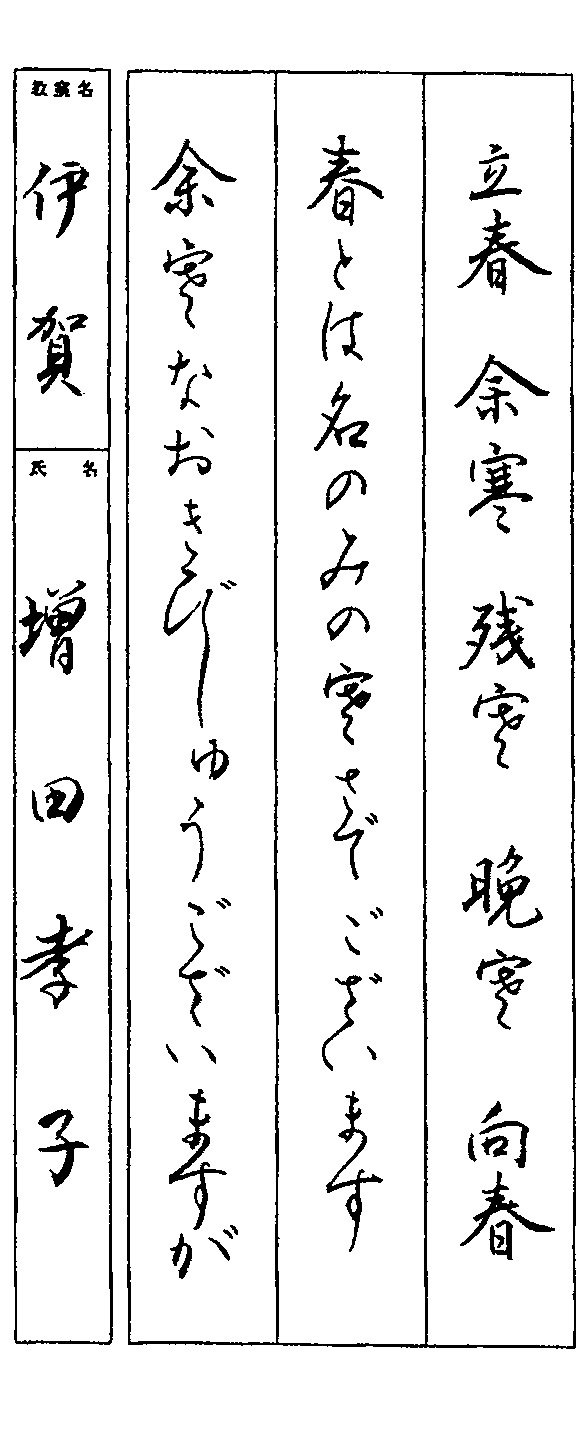 立春 余寒 残寒 晩寒 向春
春とは名のみの寒さでございます
余寒なおきびしゅうございますが
教室名
伊賀
氏名
増田孝子